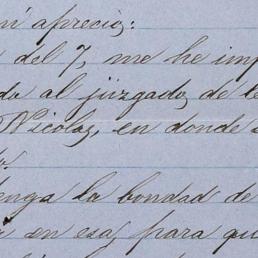 aprecio:
del 7, me he imp
al juzgado, de le
Nicolas, en donde
enga la bondad de
en esa, para qu